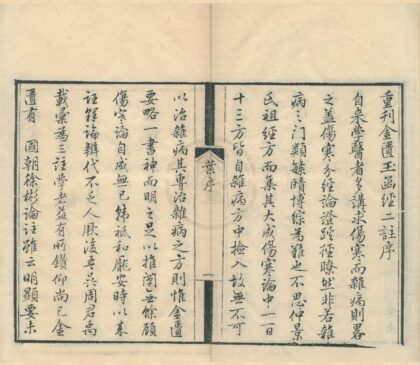 重刊金匱玉函經二註序
自來學醫者多講求傷寒而雜病則畧
之蓋傷寒分經論證蹊徑瞭然非若雜
病之門類繁賾博綜為難也不思仲景
氏祖經方而集其大成傷寒論中一百
十三方皆自雜病方中檢入故無不可
葉序
一
以治雜病其專治雜病之方則惟金匱
要略一書神而明之足以推闡無餘顧
傷寒論自成無已韓祗和龐安時以來
註釋論辯代不乏人厥後吾吳周君禹
載彙為三註學者益有所鑽仰而已金
匱有 國朝徐彬論註雖云明顯要未